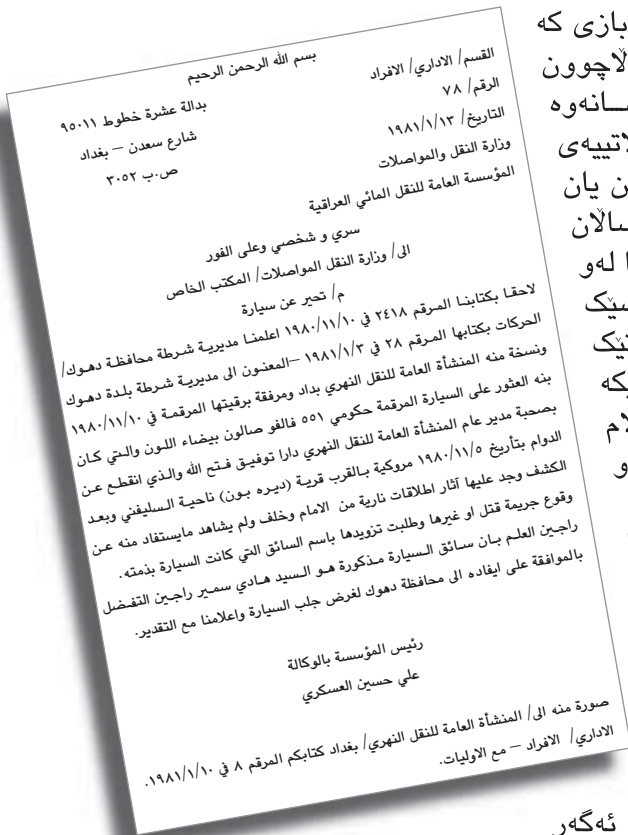 بازى كه
لاچوون
سانهوه
لاتييهى
ن يان
سالان
ا لهو
سێک
نێک
يكه
لام
و
بسم الله الرحمن الرحيم
القسم/ الاداري/ الافراد
الرقم/ ٧٨
التاريخ/ ١٩٨١/١/١٣
وزارة النقل والمواصلات
المؤسسة العامة للنقل المائي العراقية
بدالة عشرة خطوط ٩٥٠١١
شارع سعدن – بغداد
ص.ب ٣٠٥٢
سري و شخصي وعلى الفور
الى/ وزارة النقل المواصلات/ المكتب الخاص
م/ تحير عن سيارة
لاحقا بكتابنا المرقم ٢٤١٨ في ١٩٨٠/١١/١٠ اعلمنا مديرية شرطة محافظة دهوك/
الحركات بكتابها المرقم ٢٨ في ١٩٨١/١/٣ –المعنون الى مديرية شرطة بلدة دهوك
ونسخة منه المنشأة العامة للنقل النهري بداد ومرفقة برقيتها المرقمة في ١٩٨٠/١١/١٠
بنه العثور على السيارة المرقمة حكومي ٥٥١ فالفو صالون بيضاء اللون والتي كان
بصحبة مدير عام المنشأة العامة للنقل النهري دارا توفيق فتح الله والذي انقطع عن
الدوام بتأريخ ١٩٨٠/١١/٥ مروكية بالقرب قرية (ديره بون) ناحية السليفني وبعد
الكشف وجد عليها آثار اطلاقات نارية من الامام وخلف ولم يشاهد مايستفاد منه عن
وقوع جريمة قتل او غيرها وطلبت تزويدها باسم السائق التي كانت السيارة بذمته.
راجين العلم بان سائق السيارة مذكورة هو السيد هادي سمير راجين التفضل
بالموافقة على ايفاده الى محافظة دهوك لغرض جلب السيارة واعلامنا مع التقدير.
رئيس المؤسسة بالوكالة
علي حسين العسكري
صورة منه الى/ المنشأة العامة للنقل النهري/ بغداد كتابكم المرقم ٨ في ١٩٨١/١/١٠.
الاداري/ الافراد – مع الاوليات.
ئهگهر